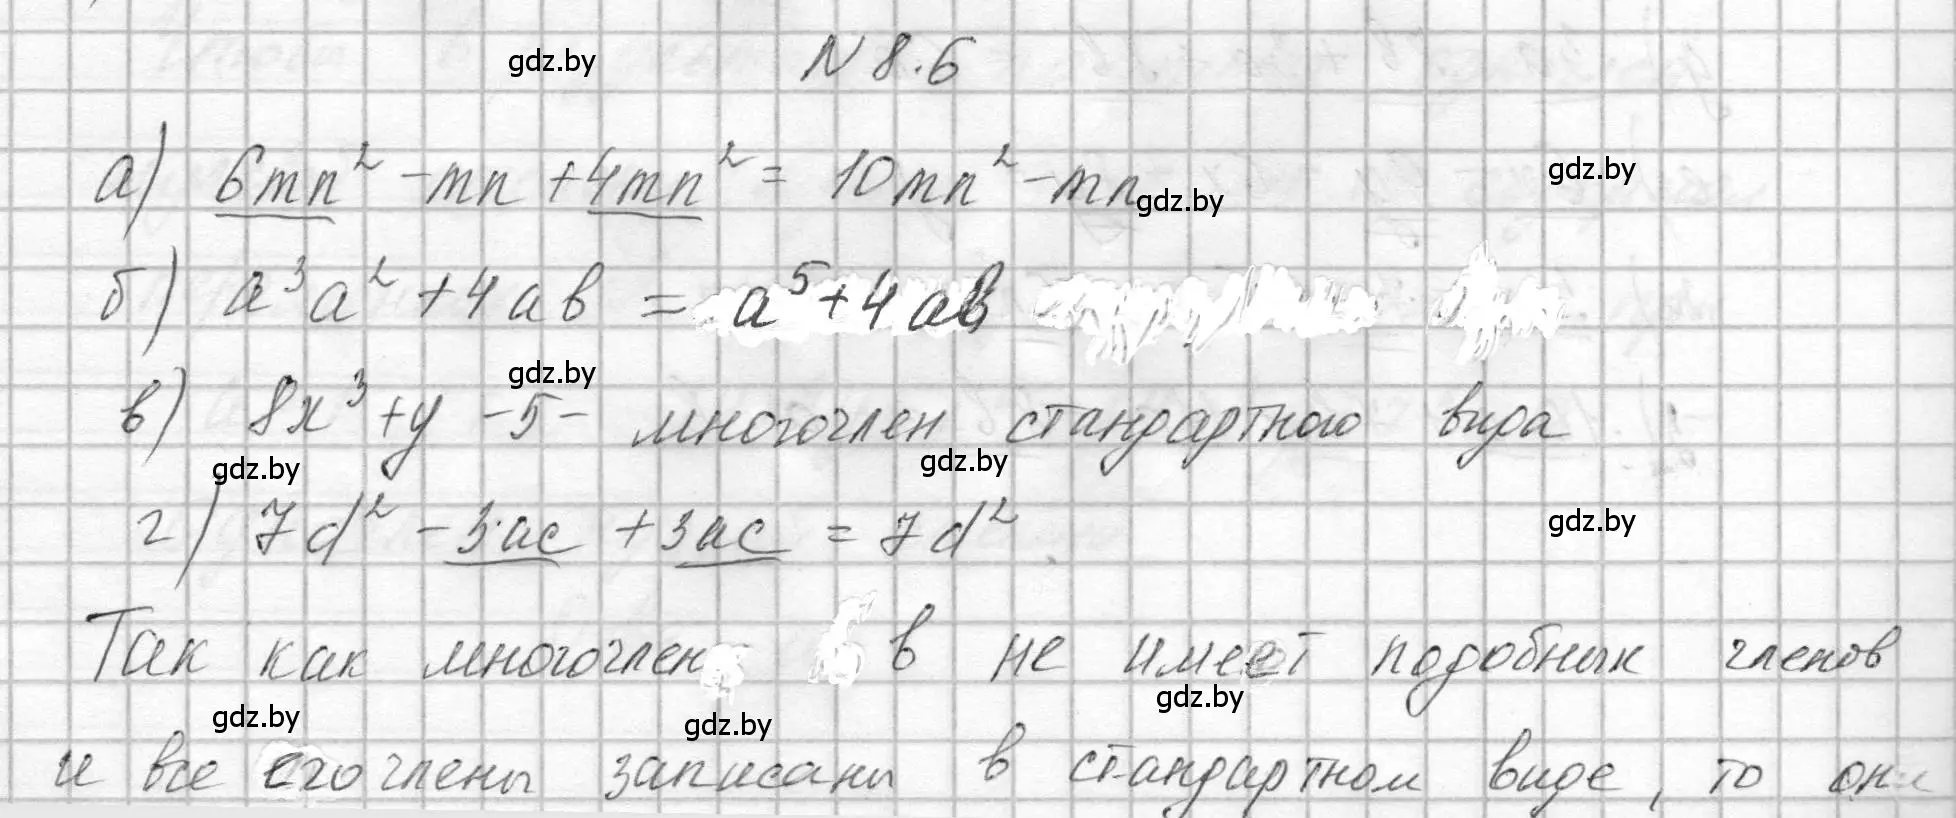 gdz.by N 8.6
а) 6mn² - mn + 4mn² = 10mn² - mn gdz.by gdz.by
б) a³a² + 4ab = a⁵ + 4ab
gdz.by
в) 8x³ + y - 5 - многочлен стандартного вида
gdz.by gdz.by
г) 7d² - 3·ac + 3ac = 7d² gdz.by
Так как многочлен в не имеет подобных членов
gdz.by gdz.by gdz.by
и все его члены записаны в стандартном виде, то они